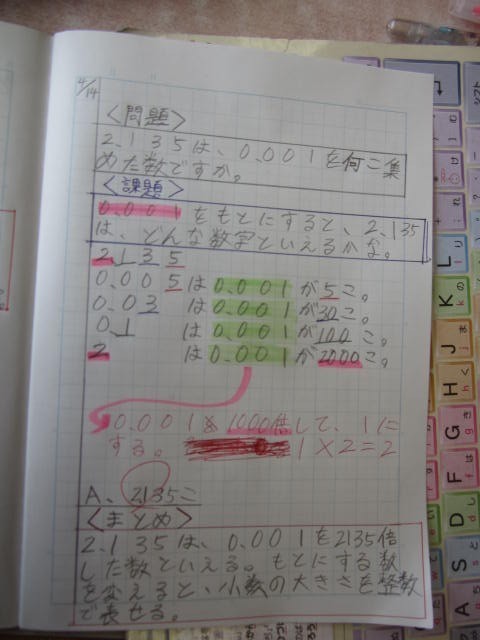 4/14
〈問題〉
2.135は、0.001を何こ集
めた数ですか。
〈課題〉
0.001をもとにすると、2.135
は、どんな数字といえるかな。
2.135
0.005は0.001が5こ。
0.03は0.001が30こ。
0.1は0.001が100こ。
2は0.001が2000こ。
0.001を1000倍して、1に
する。1×2=2
A、2135こ
〈まとめ〉
2.135は、0.001を2135倍
した数といえる。もとにする数
を変えると、小数の大きさを整数
で表せる。
L
K
の
J
ま
H
く
G
き
F
は
D
し
S
と
A
ち